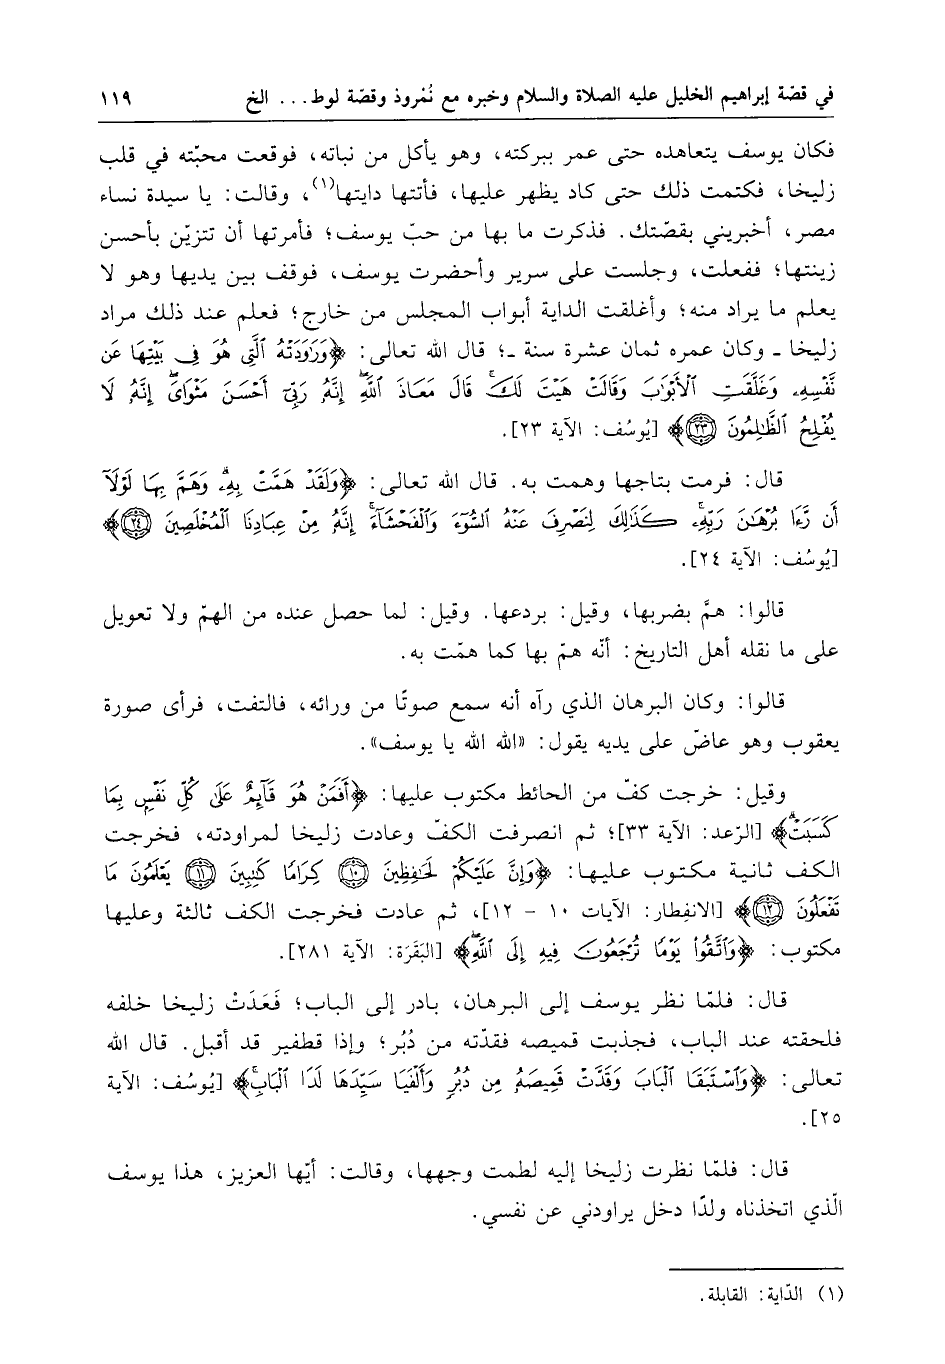 في قصّة إبراهيم الخليل عليه الصلاة والسلام وخبره مع نُمْروذ وقصّة لوط... الخ ١١٩
فكان يوسف يتعاهده حتى عمر ببركته، وهو يأكل من نباته، فوقعت محبّته في قلب
زليخا، فكتمت ذلك حتى كاد يظهر عليها، فأتتها دايتها(١)، وقالت: يا سيدة نساء
مصر، أخبريني بقصّتك. فذكرت ما بها من حبّ يوسف؛ فأمرتها أن تتزيّن بأحسن
زينتها؛ ففعلت، وجلست على سرير وأحضرت يوسف، فوقف بين يديها وهو لا
يعلم ما يراد منه؛ وأغلقت الداية أبواب المجلس من خارج؛ فعلم عند ذلك مراد
زليخا ـ وكان عمره ثمان عشرة سنة ـ؛ قال الله تعالى: ﴿وَرَٰوَدَتْهُ ٱلَّتِى هُوَ فِى بَيْتِهَا عَن
نَّفْسِهِۦ وَغَلَّقَتِ ٱلْأَبْوَٰبَ وَقَالَتْ هَيْتَ لَكَ ۚ قَالَ مَعَاذَ ٱللَّهِ ۖ إِنَّهُۥ رَبِّىٓ أَحْسَنَ مَثْوَاىَ ۖ إِنَّهُۥ لَا
يُفْلِحُ ٱلظَّٰلِمُونَ ٢٣﴾ [يُوسُف: الآية ٢٣].
قال: فرمت بتاجها وهمت به. قال الله تعالى: ﴿وَلَقَدْ هَمَّتْ بِهِۦ ۖ وَهَمَّ بِهَا لَوْلَآ
أَن رَّءَا بُرْهَٰنَ رَبِّهِۦ ۚ كَذَٰلِكَ لِنَصْرِفَ عَنْهُ ٱلسُّوٓءَ وَٱلْفَحْشَآءَ ۚ إِنَّهُۥ مِنْ عِبَادِنَا ٱلْمُخْلَصِينَ ٢٤﴾
[يُوسُف: الآية ٢٤].
قالوا: همَّ بضربها، وقيل: بردعها. وقيل: لما حصل عنده من الهمّ ولا تعويل
على ما نقله أهل التاريخ: أنّه همّ بها كما همّت به.
قالوا: وكان البرهان الذي رآه أنه سمع صوتًا من ورائه، فالتفت، فرأى صورة
يعقوب وهو عاضّ على يديه يقول: «الله الله يا يوسف».
وقيل: خرجت كفّ من الحائط مكتوب عليها: ﴿أَفَمَنْ هُوَ قَآئِمٌ عَلَىٰ كُلِّ نَفْسٍۭ بِمَا
كَسَبَتْ ۗ﴾ [الرّعد: الآية ٣٣]؛ ثم انصرفت الكفّ وعادت زليخا لمراودته، فخرجت
الكف ثانية مكتوب عليها: ﴿وَإِنَّ عَلَيْكُمْ لَحَٰفِظِينَ ١٠ كِرَامًا كَٰتِبِينَ ١١ يَعْلَمُونَ مَا
تَفْعَلُونَ ١٢﴾ [الانفِطار: الآيات ١٠ - ١٢]، ثم عادت فخرجت الكف ثالثة وعليها
مكتوب: ﴿وَٱتَّقُوا۟ يَوْمًا تُرْجَعُونَ فِيهِ إِلَى ٱللَّهِ ۖ﴾ [البَقَرَة: الآية ٢٨١].
قال: فلمّا نظر يوسف إلى البرهان، بادر إلى الباب؛ فَعَدَتْ زليخا خلفه
فلحقته عند الباب، فجذبت قميصه فقدّته من دُبُر؛ وإذا قطفير قد أقبل. قال الله
تعالى: ﴿وَٱسْتَبَقَا ٱلْبَابَ وَقَدَّتْ قَمِيصَهُۥ مِن دُبُرٍ وَأَلْفَيَا سَيِّدَهَا لَدَا ٱلْبَابِ ۚ﴾ [يُوسُف: الآية
٢٥].
قال: فلمّا نظرت زليخا إليه لطمت وجهها، وقالت: أيّها العزيز، هذا يوسف
الّذي اتخذناه ولدًا دخل يراودني عن نفسي.
(١) الدّاية: القابلة.